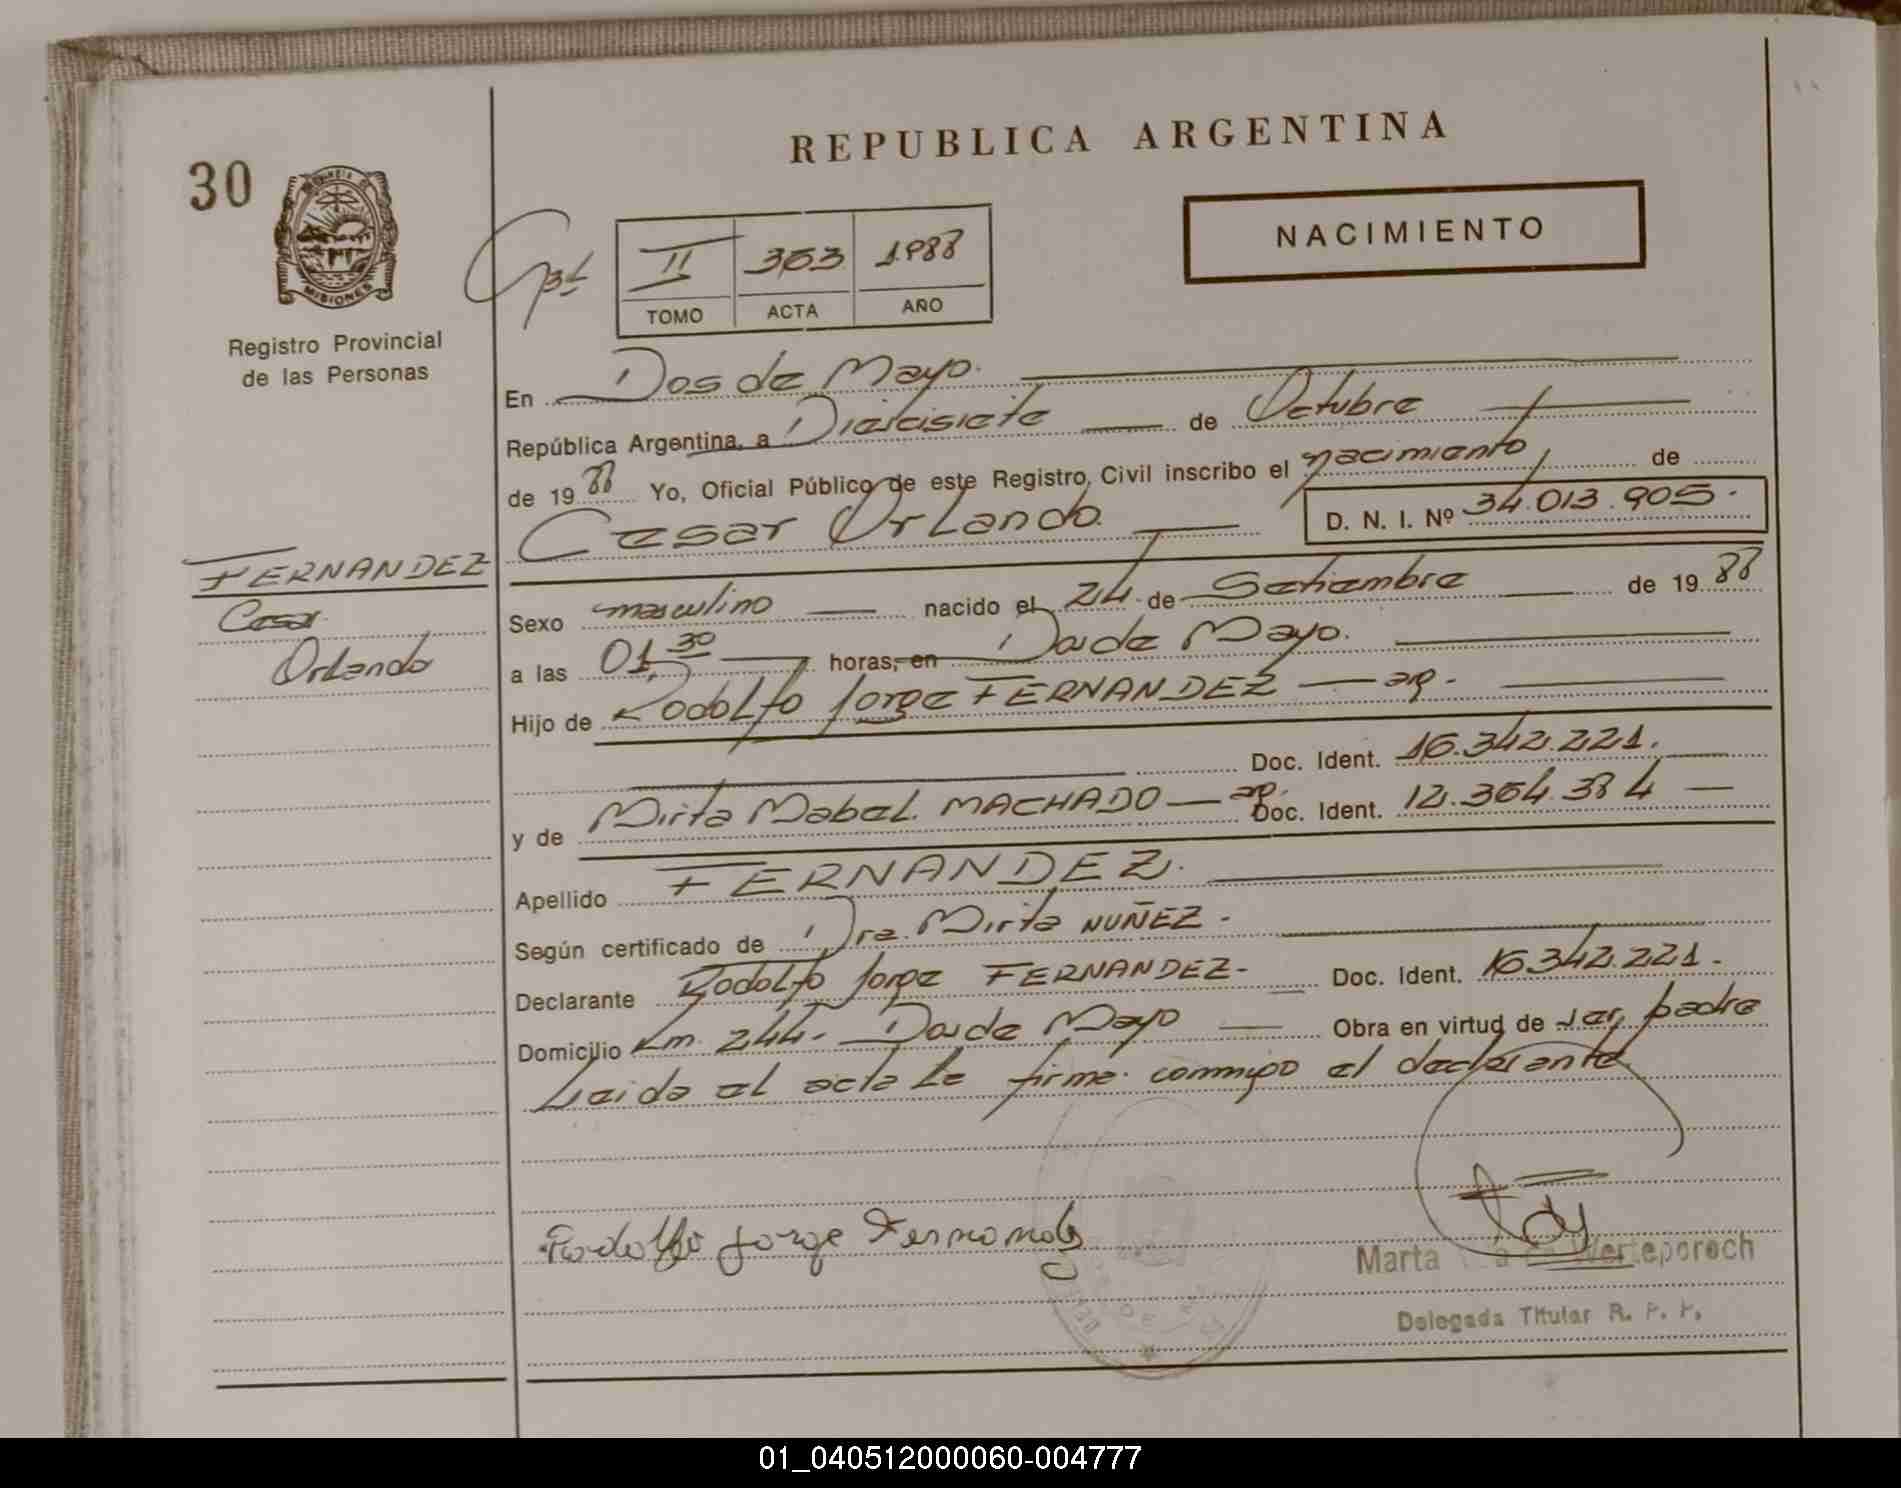 REPUBLICA ARGENTINA
30
PROVINCIA DE
MISIONES
Registro Provincial
de las Personas
NACIMIENTO
II 353 1988
TOMO ACTA AÑO
En Dos de Mayo.
República Argentina, a Diecisiete de Octubre
de 1988 Yo, Oficial Público de este Registro Civil inscribo el nacimiento de
Cesar Orlando. D. N. I. Nº 34.013.905.
FERNANDEZ
Cesar
Orlando
Sexo masculino nacido el 24 de Setiembre de 1988
a las 01,30 horas, en Dos de Mayo.
Hijo de Rodolfo Jorge FERNANDEZ — ar.
Doc. Ident. 16.342.221.
y de Mirta Mabel. MACHADO — ar. Doc. Ident. 12.364.384
Apellido FERNANDEZ.
Según certificado de Dra. Mirta NUÑEZ.
Declarante Rodolfo Jorge FERNANDEZ. Doc. Ident. 16.342.221.
Domicilio Km. 244. Dos de Mayo Obra en virtud de ser padre
Leida el acta la firma conmigo el declarante
Rodolfo Jorge Fernandez
Marta de Werteporoch
Delegada Titular R. P. P.
01_040512000060-004777